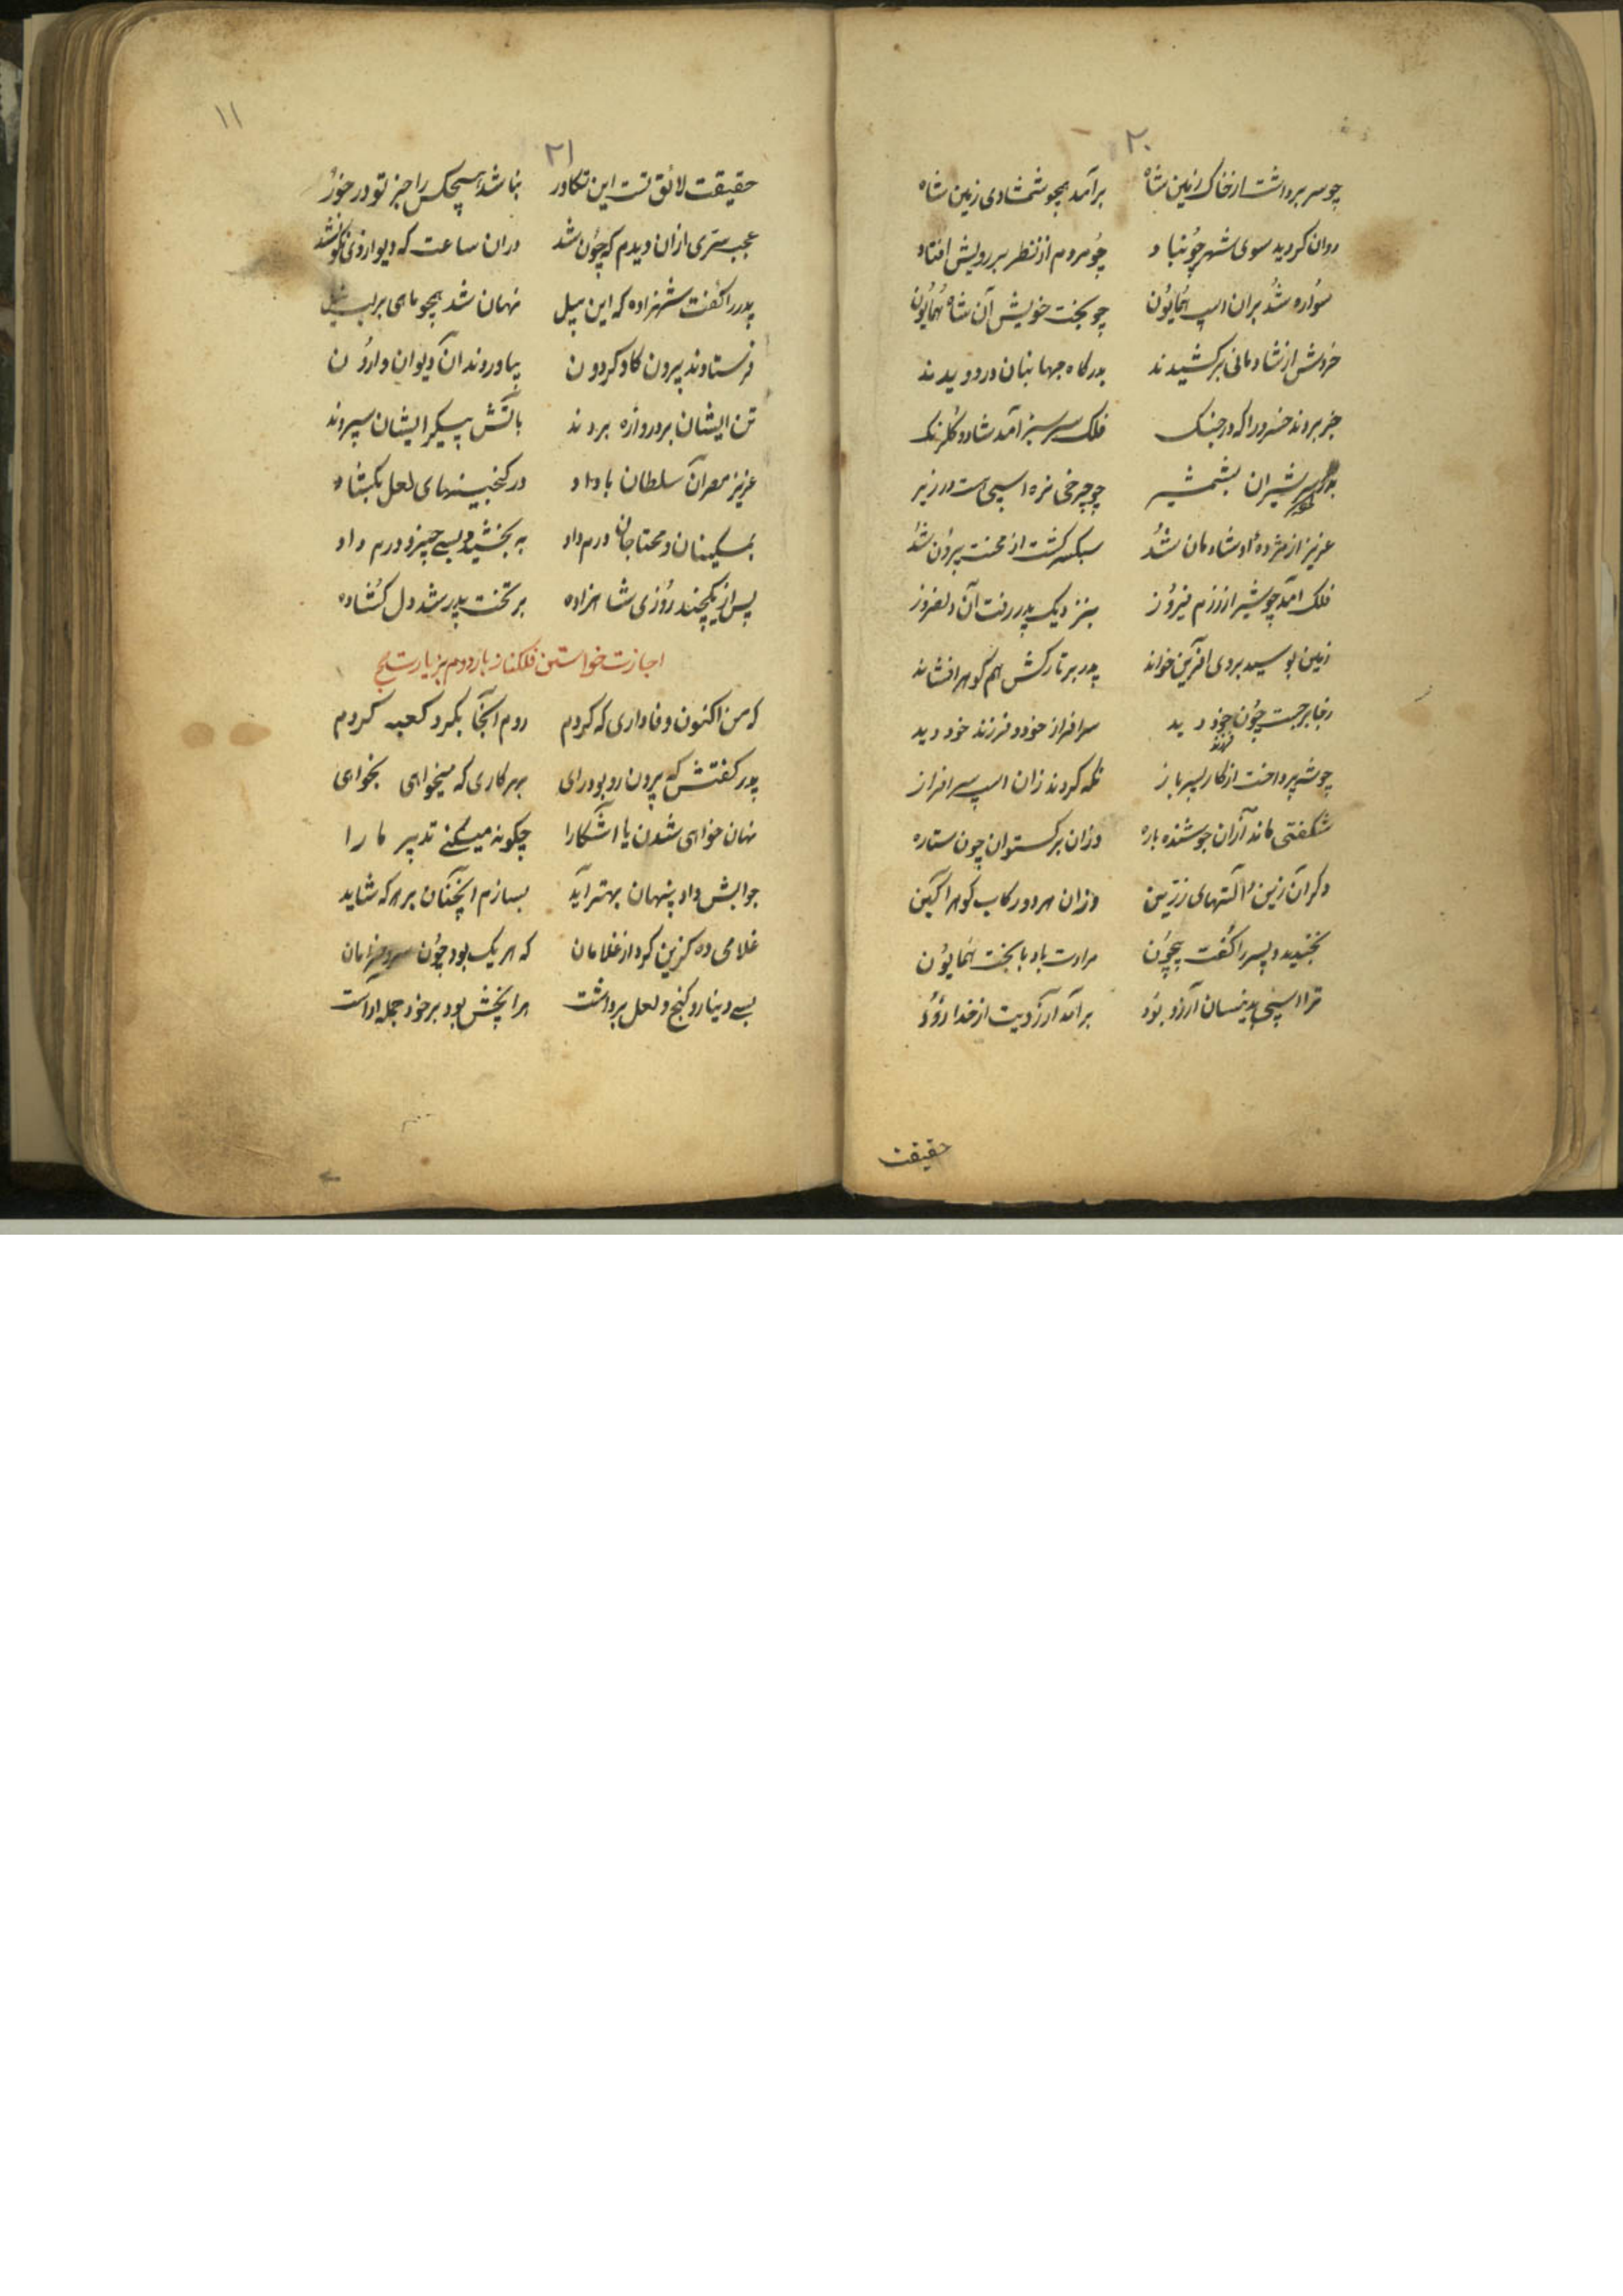 ۲۰
چو سر برداشت از خاک زمین شاه برآمد همچو شمشادی زمین شاه
روان کردید سوی شهر چون باد چو مردم از نظر بر رویش افتاد
سواره شد بران اسپ همایون چو بخت خویش آن شاه همایون
خروش از شادمانی برکشیدند بدرکاه جهانبان در دویدند
خبر بردند خسرو را که در جنک فلک سرسبز آمد شاد و کلرنک
سر شیران بشمشیر چو چرخی نره اسپی هست در زیر
عزیز از مژدهٔ او شادمان شد سبک برکشت از محنت برون شد
فلک آمد چو شیر از رزم فیروز بنزدیک پدر رفت آن دلفروز
زمین بوسید بر وی آفرین خواند پدر بر تارکش هم کوهر افشاند
ز جا برجست چون خود دید سرافراز خود و فرزند خود دید
فرزند
چو شه پرداخت از کار پسر باز نکه کردند زان اسپ سرافراز
شکفتی ماند از آن جوشنده باره وزان برکستوان چون ستاره
دکر آن زین و آلتهای زرین وزان هر دو رکاب کوهر آکین
بخندید و پسر را کفت بیچون مرادت باد با بخت همایون
ترا اسپی بدینسان آرزو بود برآمد آرزویت از خدا زود
حقیقت
۱۱
۲۱
حقیقت لائق تست این تکاور نباشد هیچکس را جز تو در خور
عجب سری ازان دیدم که چون شد دران ساعت که دیوارزی نکون شد
پدر را کفت شهزاده که این پیل نهان شد همچو ماهی بر لب نیل
فرستادند بیرون کاو کردون بیاوردند آن دیوان وارون
تن ایشان بر دروازه بردند بآتش پیکر ایشان سپردند
عزیز مصر آن سلطان با داد در کنجینهای لعل بکشاد
بمسکینان و محتاجان درم داد به بخشید و بسی چیز و درم داد
پس از یکچند روزی شاهزاده بر تخت پدر شد دل کشاده
اجازت خواستن فلکناز بار دوم بزیارت حج
که من اکنون وفاداری که کردم روم آنجا بکرد کعبه کردم
پدر کفتش که بیرون رو بودرای بهر کاری که میخواهی بخوای
نهان خواهی شدن یا آشکارا چکونه میکنے تدبیر ما را
جوابش داد پنهان بهتر آید بسازم آنچنان بر هر که شاید
غلامی ده کزین کرد از غلامان که هر یک بود چون سرو خرامان
بسے دینار و کنج و لعل برداشت هرا پخش بود بر خود جمله آراست